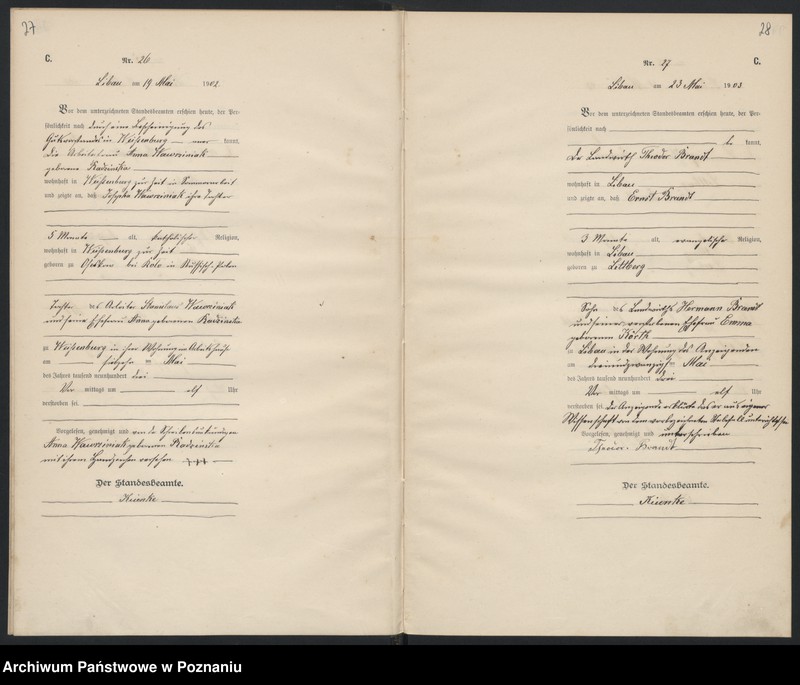 27
C.
Nr. 26
Libau am 19 Mai 1903.
Vor dem unterzeichneten Standesbeamten erschien heute, der Per-
sönlichkeit nach durch eine Bescheinigung des
Gutsvorstandes in Weißenburg kannt,
die Arbeiterfrau Anna Wawrziniak
geborene
wohnhaft in Weißenburg zur Zeit in Sommerarbeit
und zeigte an, daß Josepha Wawrziniak ihre Tochter
5 Monate alt, katholischer Religion,
wohnhaft in Weißenburg zur Zeit
geboren zu bei Kolo in Russisch-Polen
Tochter des Arbeiter Stanislaus Wawrziniak
und seiner Ehefrau Anna geborenen
zu Weißenburg in ihrer Wohnung im Arbeiterhause
am ten Mai
des Jahres tausend neunhundert drei
Vor mittags um elf Uhr
verstorben sei.
Vorgelesen, genehmigt und von der Schreibensunkundigen
Anna Wawrziniak geborenen
mit ihrem Handzeichen versehen +++
Der Standesbeamte.
Kuenke
28
Nr. 27
C.
Libau am 23 Mai 1903
Vor dem unterzeichneten Standesbeamten erschien heute, der Per-
sönlichkeit nach
be kannt,
der Landwirth Theodor Brandt
wohnhaft in Libau
und zeigte an, daß Ernst Brandt
3 Monate alt, evangelische Religion,
wohnhaft in Libau
geboren zu Lettberg
Sohn des Landwirths Hermann Brandt
und seiner verstorbenen Ehefrau Emma
geborenen
zu Libau in der Wohnung des Anzeigenden
am dreiundzwanzigsten Mai
des Jahres tausend neunhundert drei
Vor mittags um elf Uhr
verstorben sei. der Anzeigende erklärte das er aus eigener
Wissenschaft von dem vorbezeichneten Sterbefall unterrichtet sei
Vorgelesen, genehmigt und unterschrieben
Theodor Brandt
Der Standesbeamte.
Kuenke
Archiwum Państwowe w Poznaniu